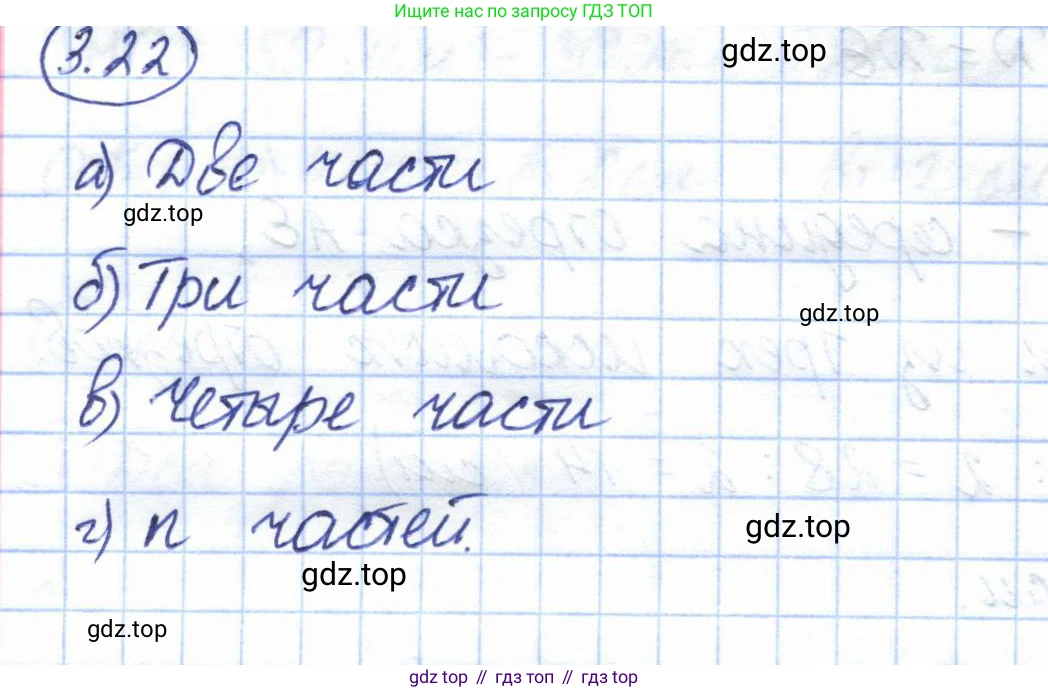 Ищите нас по запросу ГДЗ ТОП
3.22
gdz.top
а) Две части
gdz.top
б) Три части
gdz.top
в) Четыре части
г) n частей.
gdz.top
gdz.top
gdz.top
gdz top // гдз топ // gdz top